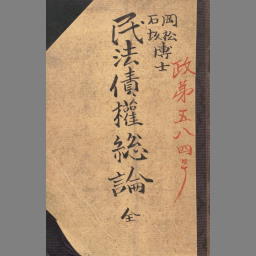 政第五八四号
岡松博士
石坂
民法債權総論 全